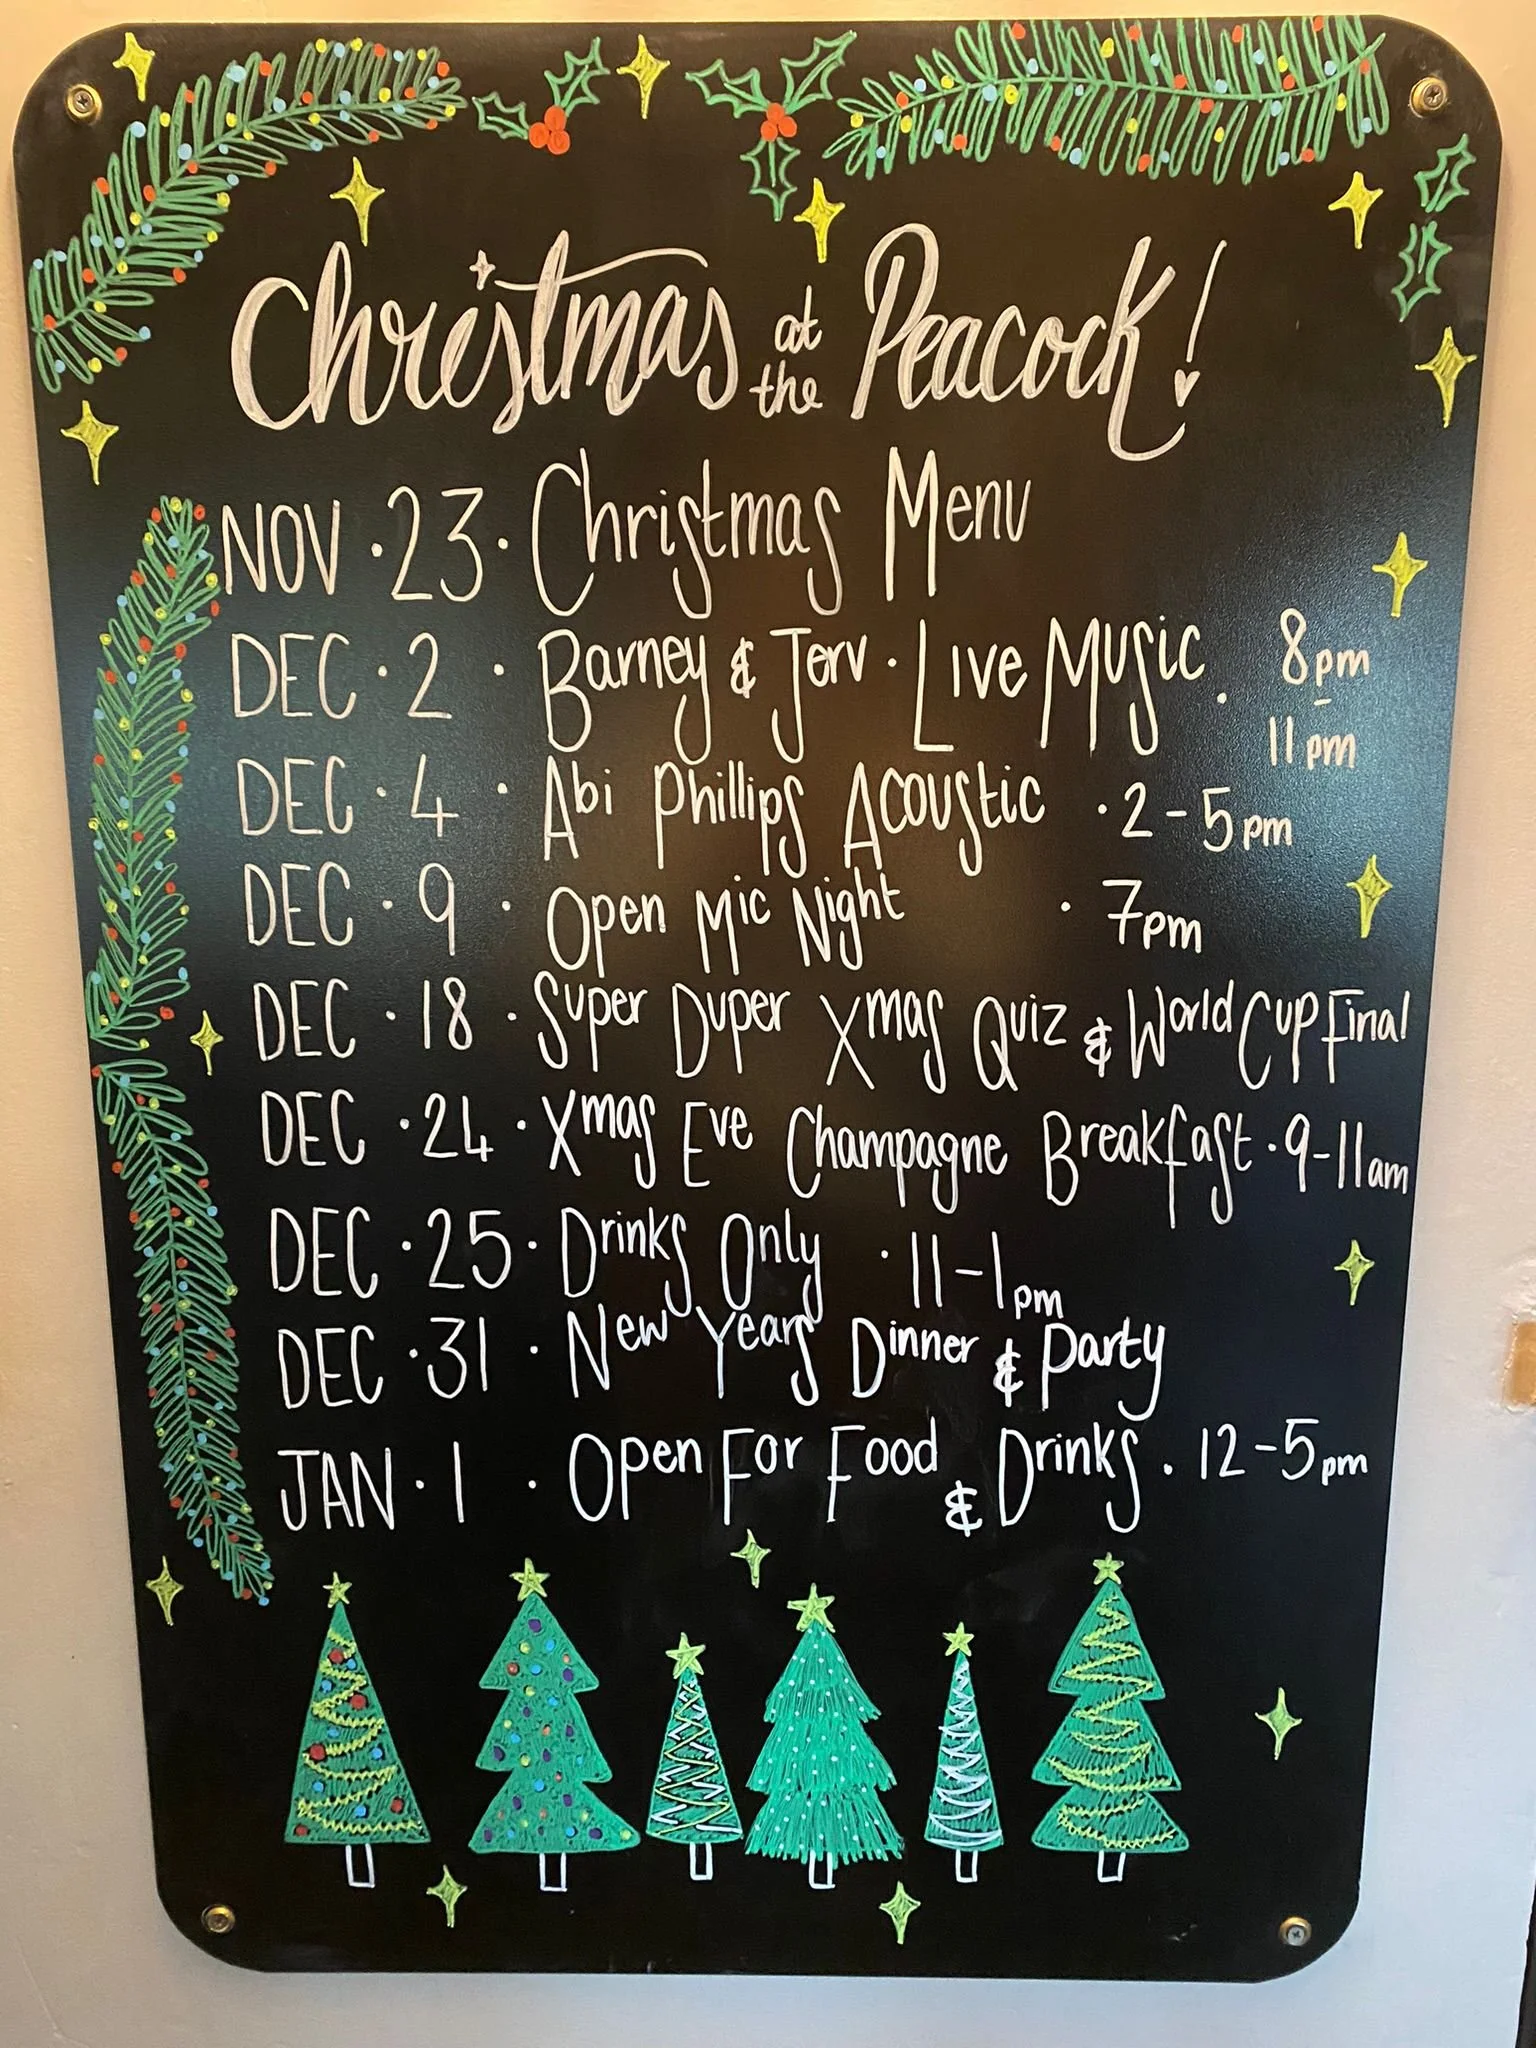 Christmas at the Peacock!
NOV · 23 · Christmas Menu
DEC · 2 · Barney & Jerv · Live Music · 8pm - 11pm
DEC · 4 · Abi Phillips Acoustic · 2-5pm
DEC · 9 · Open Mic Night · 7pm
DEC · 18 · Super Duper Xmas Quiz & World Cup Final
DEC · 24 · Xmas Eve Champagne Breakfast · 9-11am
DEC · 25 · Drinks Only · 11-1pm
DEC · 31 · New Years Dinner & Party
JAN · 1 · Open For Food & Drinks · 12-5pm